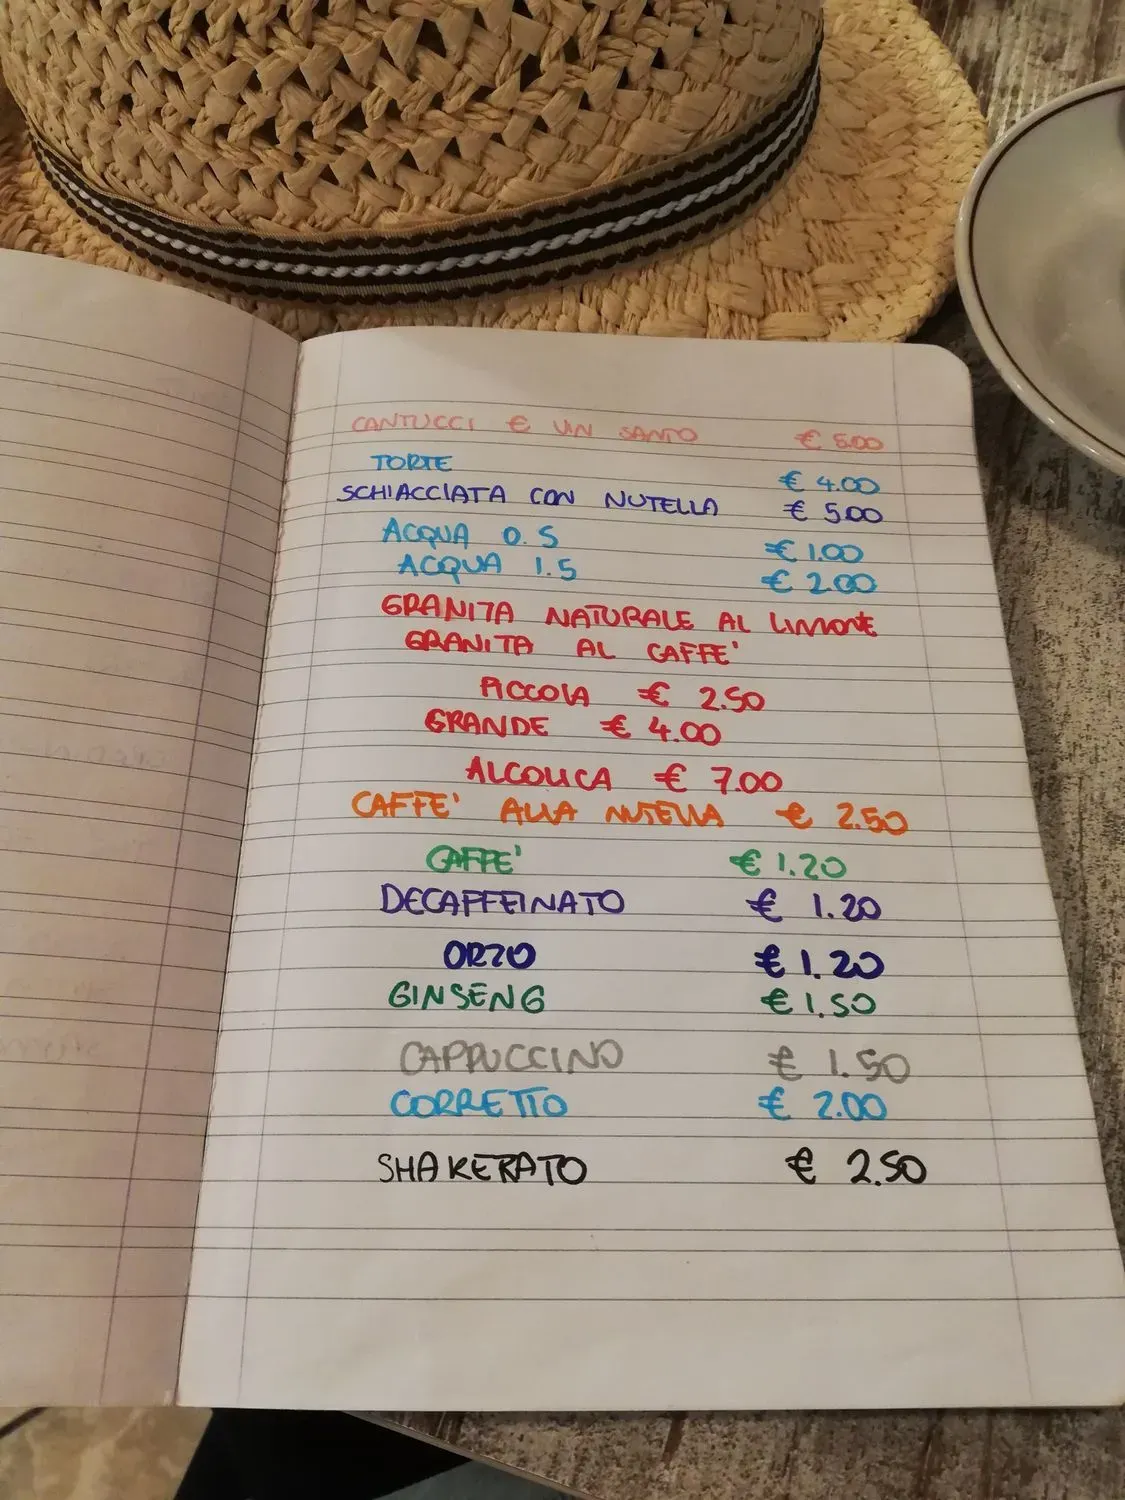 CANTUCCI E VIN SANTO € 5.00
TORTE € 4.00
SCHIACCIATA CON NUTELLA € 5.00
ACQUA 0.5 € 1.00
ACQUA 1.5 € 2.00
GRANITA NATURALE AL LIMONE
GRANITA AL CAFFE'
PICCOLA € 2.50
GRANDE € 4.00
ALCOLICA € 7.00
CAFFE' ALLA NUTELLA € 2.50
CAFFE' € 1.20
DECAFFEINATO € 1.20
ORZO € 1.20
GINSENG € 1.50
CAPPUCCINO € 1.50
CORRETTO € 2.00
SHAKERATO € 2.50